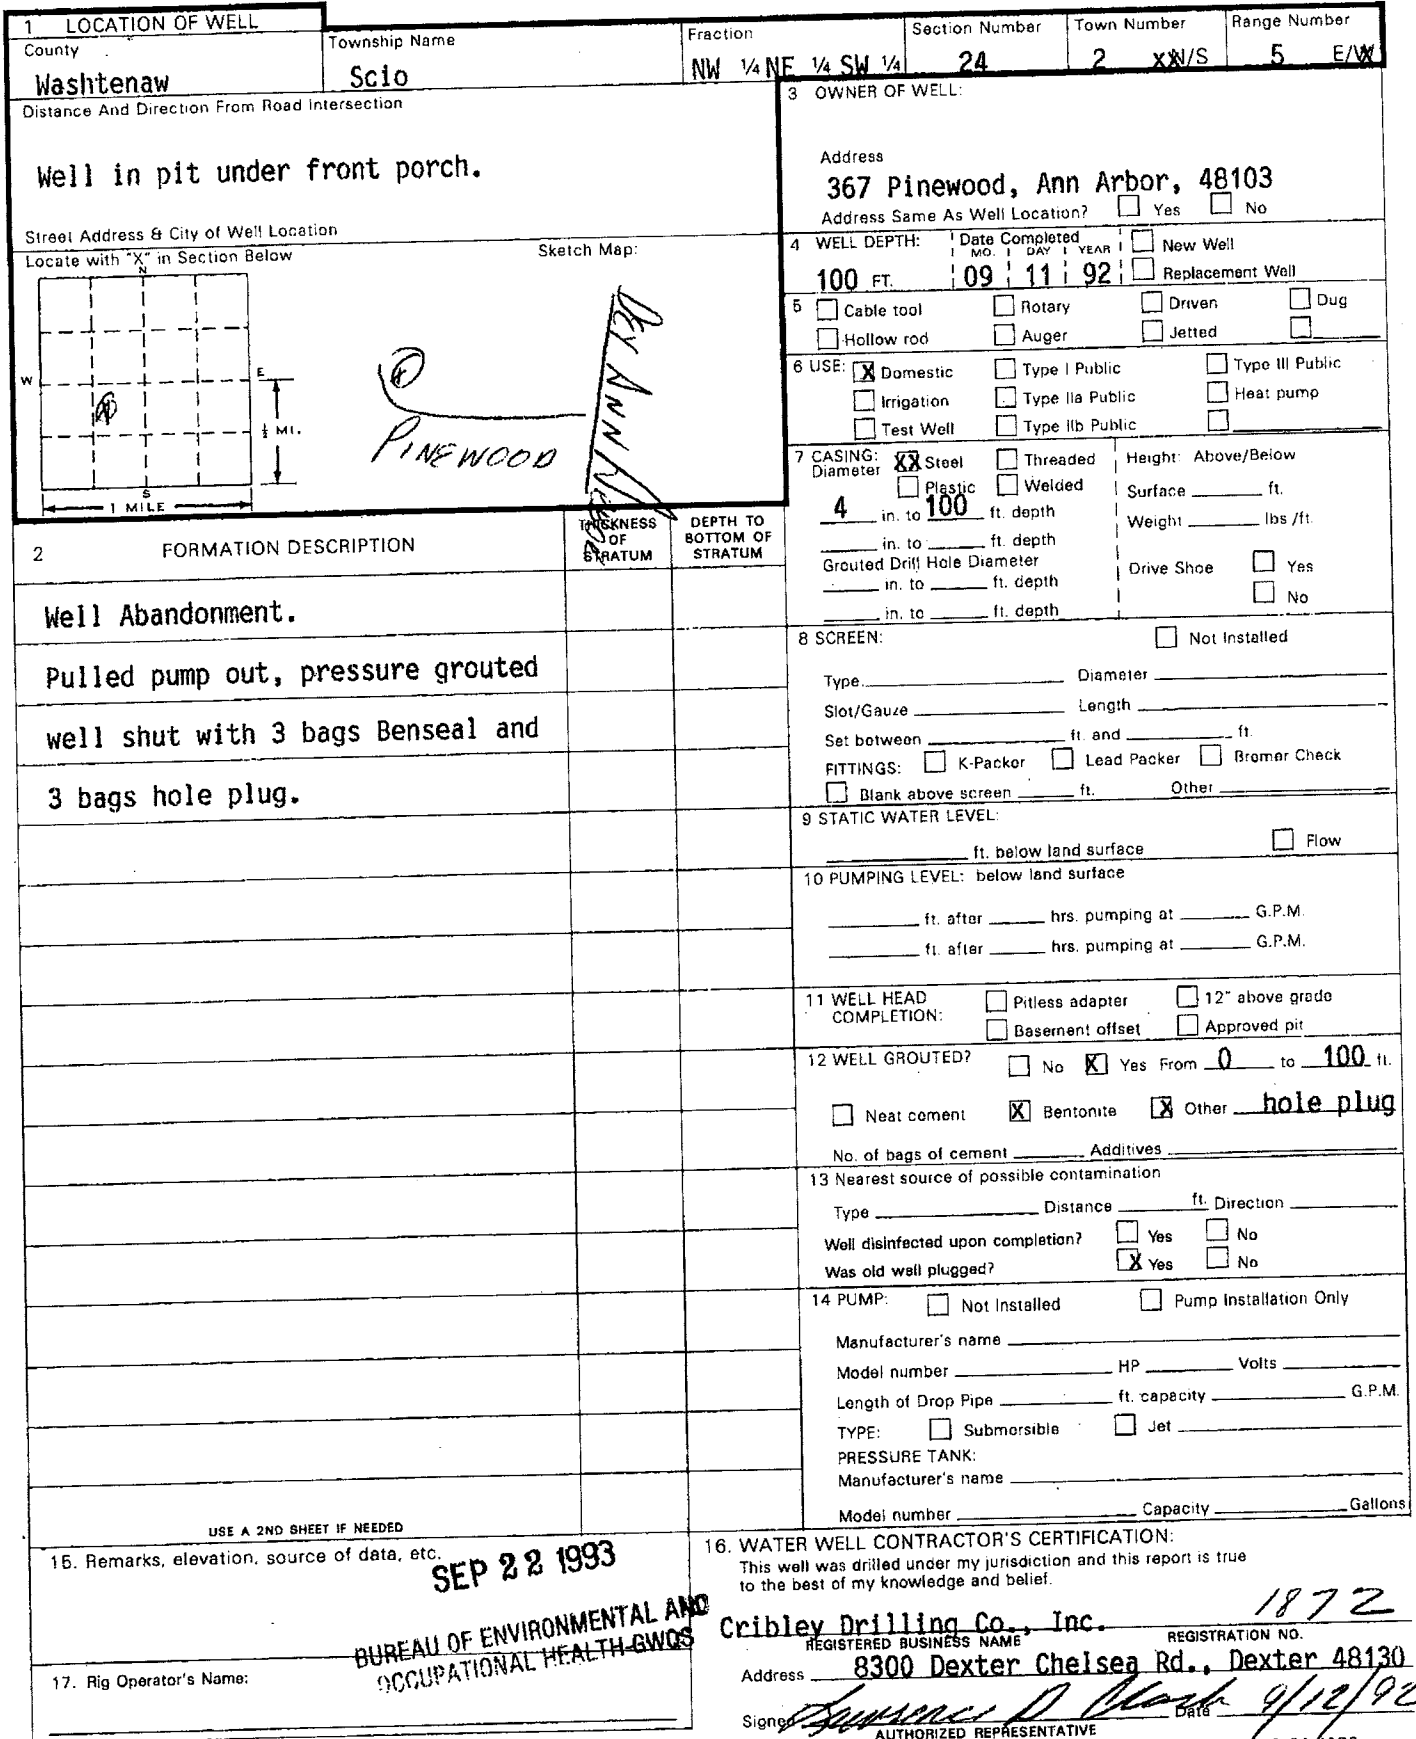 1 LOCATION OF WELL
County
Washtenaw
Township Name
Scio
Fraction
NW ¼ NE ¼ SW ¼
Section Number
24
Town Number
2 xxN/S
Range Number
5 E/W
Distance And Direction From Road Intersection
Well in pit under front porch.
Street Address & City of Well Location
Locate with "X" in Section Below
Sketch Map:
N
W
E
S
½ MI.
1 MILE
PINEWOOD
3 OWNER OF WELL:
Address
367 Pinewood, Ann Arbor, 48103
Address Same As Well Location? Yes No
4 WELL DEPTH:
100 FT.
Date Completed
MO. DAY YEAR
09 11 92
New Well
Replacement Well
5 Cable tool Rotary Driven Dug
Hollow rod Auger Jetted
6 USE: X Domestic Type I Public Type III Public
Irrigation Type IIa Public Heat pump
Test Well Type IIb Public
7 CASING: XX Steel Threaded Height: Above/Below
Diameter Plastic Welded
Surface ft.
4 in. to 100 ft. depth
Weight lbs/ft.
in. to ft. depth
Grouted Drill Hole Diameter
Drive Shoe Yes
in. to ft. depth
No
in. to ft. depth
2 FORMATION DESCRIPTION
THICKNESS OF STRATUM
DEPTH TO BOTTOM OF STRATUM
Well Abandonment.
Pulled pump out, pressure grouted
well shut with 3 bags Benseal and
3 bags hole plug.
8 SCREEN: Not Installed
Type Diameter
Slot/Gauze Length
Set between ft. and ft.
FITTINGS: K-Packer Lead Packer Bremer Check
Blank above screen ft. Other
9 STATIC WATER LEVEL:
ft. below land surface Flow
10 PUMPING LEVEL: below land surface
ft. after hrs. pumping at G.P.M.
ft. after hrs. pumping at G.P.M.
11 WELL HEAD COMPLETION: Pitless adapter 12" above grade
Basement offset Approved pit
12 WELL GROUTED? No X Yes From 0 to 100 ft.
Neat cement X Bentonite X Other hole plug
No. of bags of cement Additives
13 Nearest source of possible contamination
Type Distance ft. Direction
Well disinfected upon completion? Yes No
Was old well plugged? X Yes No
14 PUMP: Not Installed Pump Installation Only
Manufacturer's name
Model number HP Volts
Length of Drop Pipe ft. capacity G.P.M.
TYPE: Submersible Jet
PRESSURE TANK:
Manufacturer's name
Model number Capacity Gallons
USE A 2ND SHEET IF NEEDED
15. Remarks, elevation, source of data, etc.
SEP 22 1993
BUREAU OF ENVIRONMENTAL AND
OCCUPATIONAL HEALTH-GWQS
17. Rig Operator's Name:
16. WATER WELL CONTRACTOR'S CERTIFICATION:
This well was drilled under my jurisdiction and this report is true
to the best of my knowledge and belief.
Cribley Drilling Co., Inc. 1872
REGISTERED BUSINESS NAME REGISTRATION NO.
Address 8300 Dexter Chelsea Rd., Dexter 48130
Signed Date 9/12/92
AUTHORIZED REPRESENTATIVE